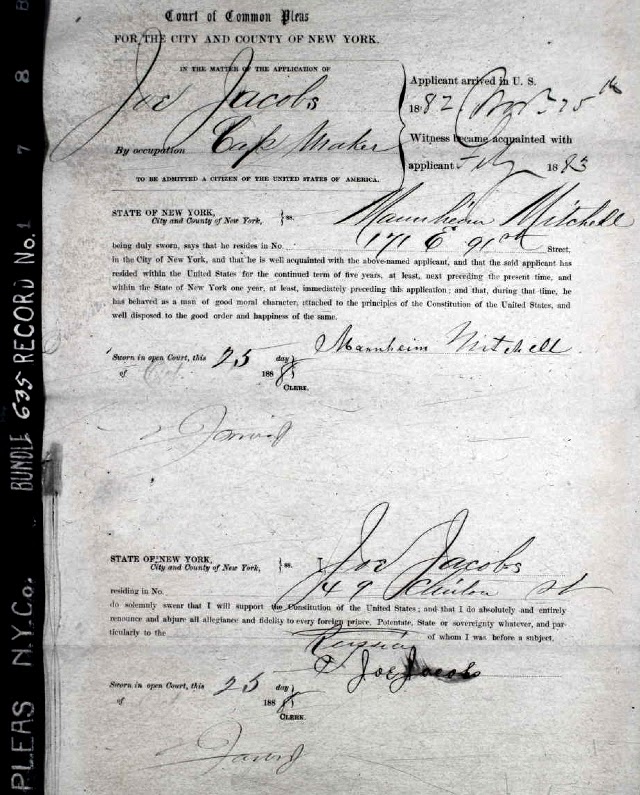 Court of Common Pleas
FOR THE CITY AND COUNTY OF NEW YORK.
IN THE MATTER OF THE APPLICATION OF
Joe Jacobs
By occupation Cap Maker
TO BE ADMITTED A CITIZEN OF THE UNITED STATES OF AMERICA.
Applicant arrived in U. S.
1882 25th
Witness became acquainted with
applicant July 1883
STATE OF NEW YORK,
City and County of New York, } ss. Mannheim Mitchell
being duly sworn, says that he resides in No. 171 E 91st Street,
in the City of New York, and that he is well acquainted with the above-named applicant, and that the said applicant has
resided within the United States for the continued term of five years, at least, next preceding the present time, and
within the State of New York one year, at least, immediately preceding this application; and that, during that time, he
has behaved as a man of good moral character, attached to the principles of the Constitution of the United States, and
well disposed to the good order and happiness of the same.
Mannheim Mitchell
Sworn in open Court, this 25 day }
of 1888 }
CLERK.
STATE OF NEW YORK,
City and County of New York, } ss. I Joe Jacobs
residing in No. 49 Clinton st
do solemnly swear that I will support the Constitution of the United States; and that I do absolutely and entirely
renounce and abjure all allegiance and fidelity to every foreign prince, Potentate, State or sovereignty whatever, and par-
ticularly to the of whom I was before a subject.
Joe Jacobs
Sworn in open Court, this 25 day }
of 1888 }
CLERK.
PLEAS N.Y.Co. BUNDLE 635 RECORD No. 1 7 8